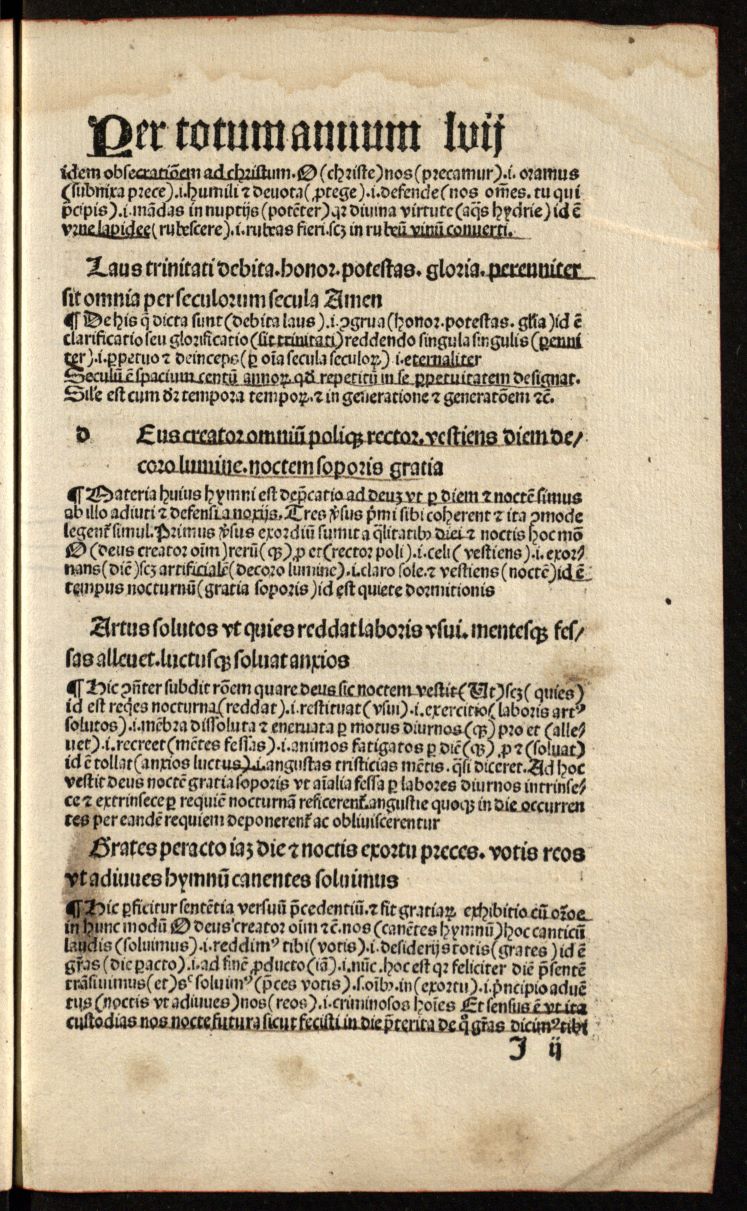 Per totum annum lvij
idem obsecratiōem ad christum. O (christe) nos (precamur) .i. oramus
(subnixa prece) .i. humili ⁊ deuota (ꝓtege) .i. defende (nos om̄es. tu qui
p̄cipis) .i. mādas in nuptijs (potēter) qꝛ diuina virtute (aq̄s hydrie) id ē
vrne lapidee (rubescere) .i. rubeas fieri. scꝫ in rubeū vinū conuerti.
Laus trinitati debita. honor. potestas. gloria. perenniter
sit omnia per seculorum secula Amen
¶ De his q̄ dicta sunt (debita laus) .i. ꝯgrua (honor. potestas. gl̄ia) id ē
clarificatio seu glorificatio (sit trinitati) reddendo singula singulis (perenni
ter) .i. ꝑpetuo ⁊ deinceps (ꝑ oīa secula seculoꝝ) .i. eternaliter
Seculū ē spacium centū annoꝝ. qd̄ repetitū in se ꝑpetuitatem designat.
Sile est cum dꝛ tempora tempoꝝ. ⁊ in generatione ⁊ generatōem ⁊c̄.
D Eus creator omniū poliqꝫ rector. vestiens diem de/
coro lumine. noctem soporis gratia
¶ Materia huius hymni est dep̄catio ad deuꝫ vt ꝑ diem ⁊ noctē simus
ab illo adiuti ⁊ defensi a noxijs. Tres v̄sus p̄mi sibi coherent ⁊ ita ꝯmode
legenꝶ simul. Primus v̄sus exordiū sumit a q̄litatibꝰ diei ⁊ noctis hoc mō
O (deus creator oīm) rerū (qꝫ) ꝓ et (rector poli) .i. celi (vestiens) .i. exor/
nans (diē) scꝫ artificialē (decoro lumine) .i. claro sole. ⁊ vestiens (noctē) id ē
tempus nocturnū (gratia soporis) id est quiete dormitionis
Artus solutos vt quies reddat laboris vsui. mentesqꝫ fes/
sas alleuet. luctusqꝫ soluat anxios
¶ Hic ꝯn̄ter subdit rōem quare deus sic noctem vestit (Ut) scꝫ (quies)
id est req̄es nocturna (reddat) .i. restituat (vsui) .i. exercitio (laboris artꝰ
solutos) .i. mēbra dissoluta ⁊ eneruata ꝑ motus diurnos (qꝫ) pro et (alle/
uet) .i. recreet (mētes fessas) .i. animos fatigatos ꝑ diē (qꝫ) ꝓ ⁊ (soluat)
id ē tollat (anxios luctus) .i. angustas tristicias mētis. q̄si diceret. Ad hoc
vestit deus noctē gratia soporis vt aīalia fessa ꝑ labores diurnos intrinse/
ce ⁊ extrinsece ꝑ requiē nocturnā reficerenꝶ. angustie quoqꝫ in die occurren
tes per eandē requiem deponerenꝶ ac obliuiscerentur
Grates peracto iaꝫ die ⁊ noctis exortu preces. votis reos
vt adiuues hymnū canentes soluimus
¶ Hic ꝑficitur sentētia versuū p̄cedentiū. ⁊ fit gratiaꝝ exhibitio cū orōe
in hunc modū O deus creator oīm ⁊c̄. nos (canētes hymnū) hoc canticū
laudis (soluimus) .i. reddimꝰ tibi (votis) .i. desiderijs totis (grates) id ē
gr̄as (die ꝑacto) .i. ad finē ꝓducto (iā) .i. nūc. hoc est qꝛ feliciter diē p̄sentē
trāsiuimus (et) sᶜ soluimꝰ (p̄ces votis) .s. oībꝰ. in (exortu) .i. p̄ncipio aduē
tus (noctis vt adiuues) nos (reos) .i. criminosos hoīes Et sensus ē vt ita
custodias nos nocte futura sicut fecisti in die p̄terita de q̄ gr̄as dicimꝰ tibi
I ij